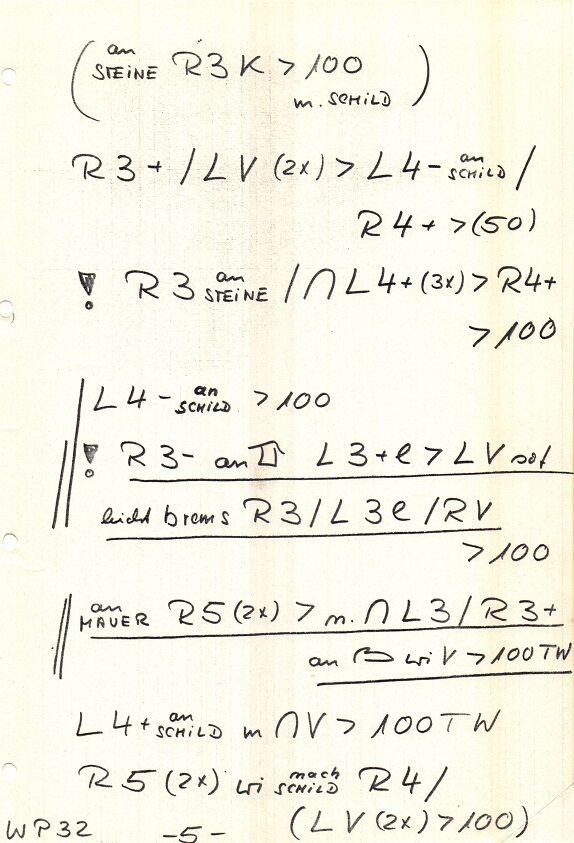 ( an STEINE R3K > 100
m. SCHILD )
R3+ / LV (2x) > L4- an SCHILD /
R4+ > (50)
! R3 an STEINE / ∩ L4+ (3x) > R4+
> 100
L4- an SCHILD > 100
! R3- an L3+e > LV sof
leicht brems R3 / L3e / RV
> 100
an MAUER R5 (2x) > m. ∩ L3 / R3+
an wi V > 100 TW
L4+ an SCHILD m ∩ V > 100 TW
R5 (2x) wi nach SCHILD R4 /
(LV (2x) > 100)
WP32 -5-